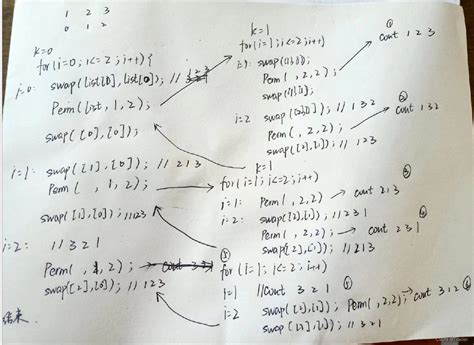 1 2 3
0 1 2
k=0
for(i=0; i<=2; i++) {
i=0: swap(list[0], list[0]); //
Perm(list, 1, 2);
swap([0],[0]);
i=1: swap([1],[0]); // 2 1 3
Perm( , 1, 2);
swap([1],[0]); //123
i=2: // 3 2 1
Perm( , 1, 2);
swap([2],[0]); // 123
结束
k=1
for(i=1; i<=2; i++)
i=1: swap([1],[1]);
Perm( , 2, 2);
swap([1],[1]);
① cout 1 2 3
i=2 swap([2],[1]); // 1 3 2
Perm( , 2, 2);
swap([2],[1]); // 1 2 3
② cout 1 3 2
k=1
for(i=1; i<=2; i++)
③
i=1: Perm( , 2, 2) → cout 2 1 3
i=2: swap([2],[1]); // 2 3 1
④
Perm( , 2, 2); → cout 2 3 1
swap([2],[1]); // 2 1 3
for(i=1; i<=2; i++)
i=1 //cout 3 2 1
i=2 swap([2],[1]); Perm( , 2, 2); → cout 3 1 2
swap([2],[1]); // 3 2 1